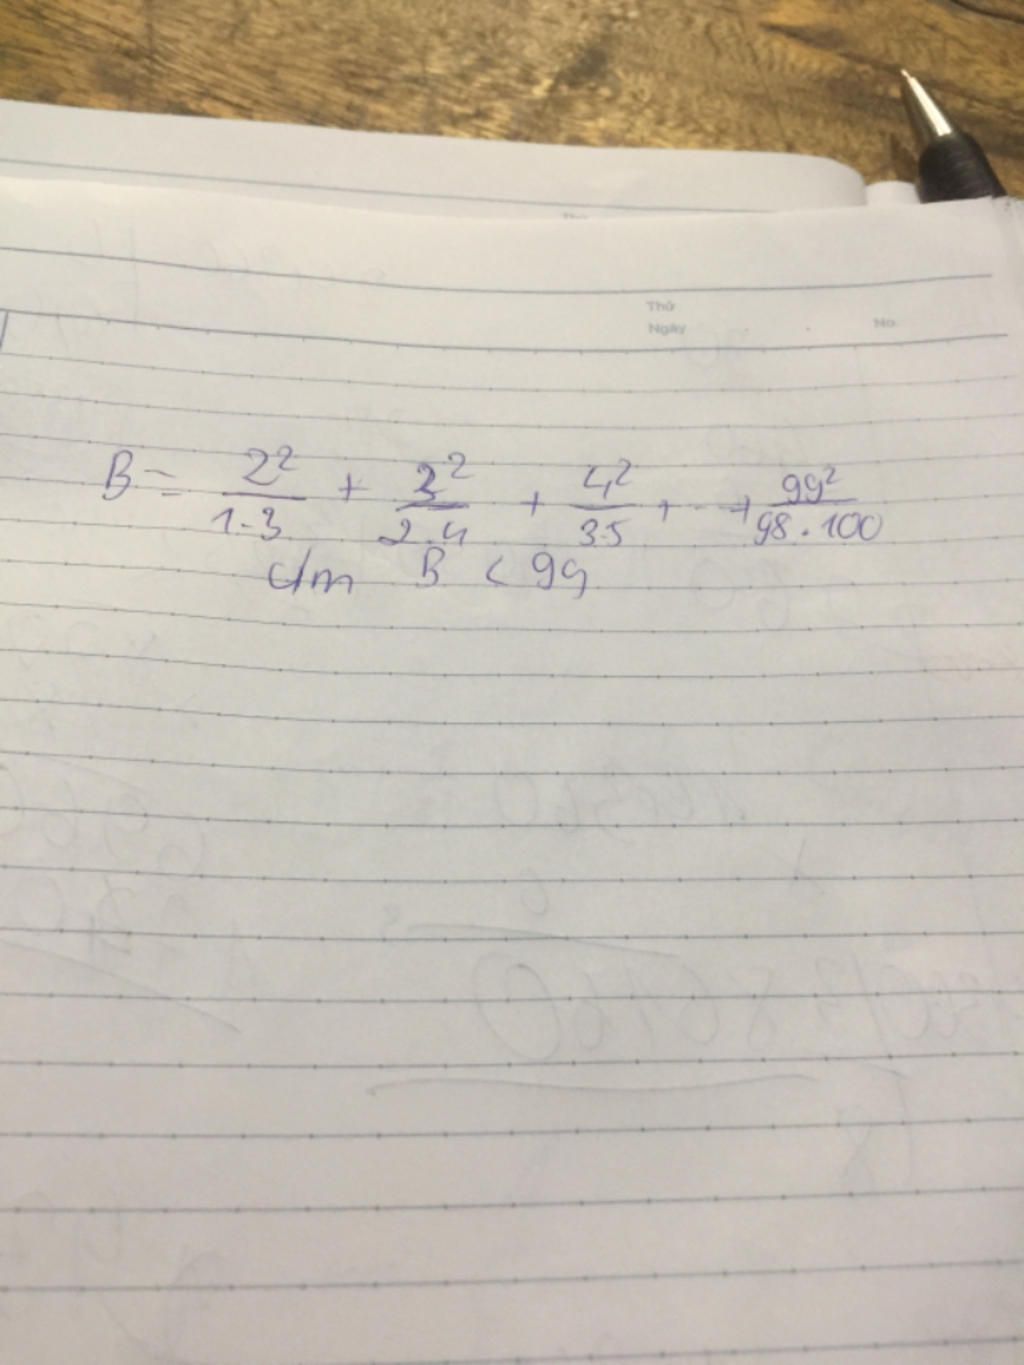 Thứ
Ngày No.
B = 2²/1.3 + 3²/2.4 + 4²/3.5 + ... + 99²/98.100
c/m B < 99